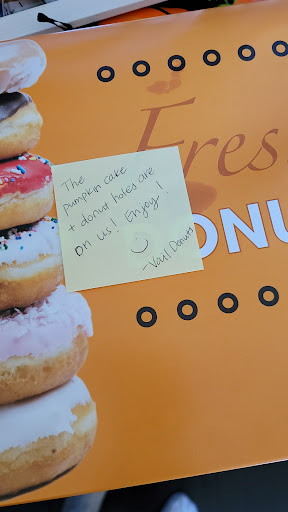 Fres
ONU
The
pumpkin cake
+ donut holes are
on us! Enjoy!
- Vail Donuts